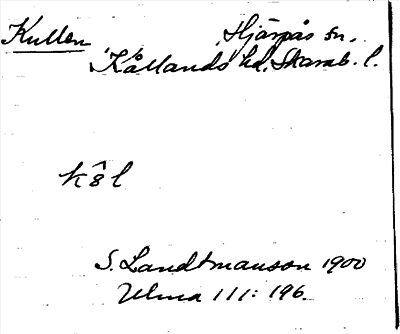 Kullen Hjärpås sn.
Kållands hd. Skarab. l.
S. Landtmanson 1900
Ulma 111: 196.